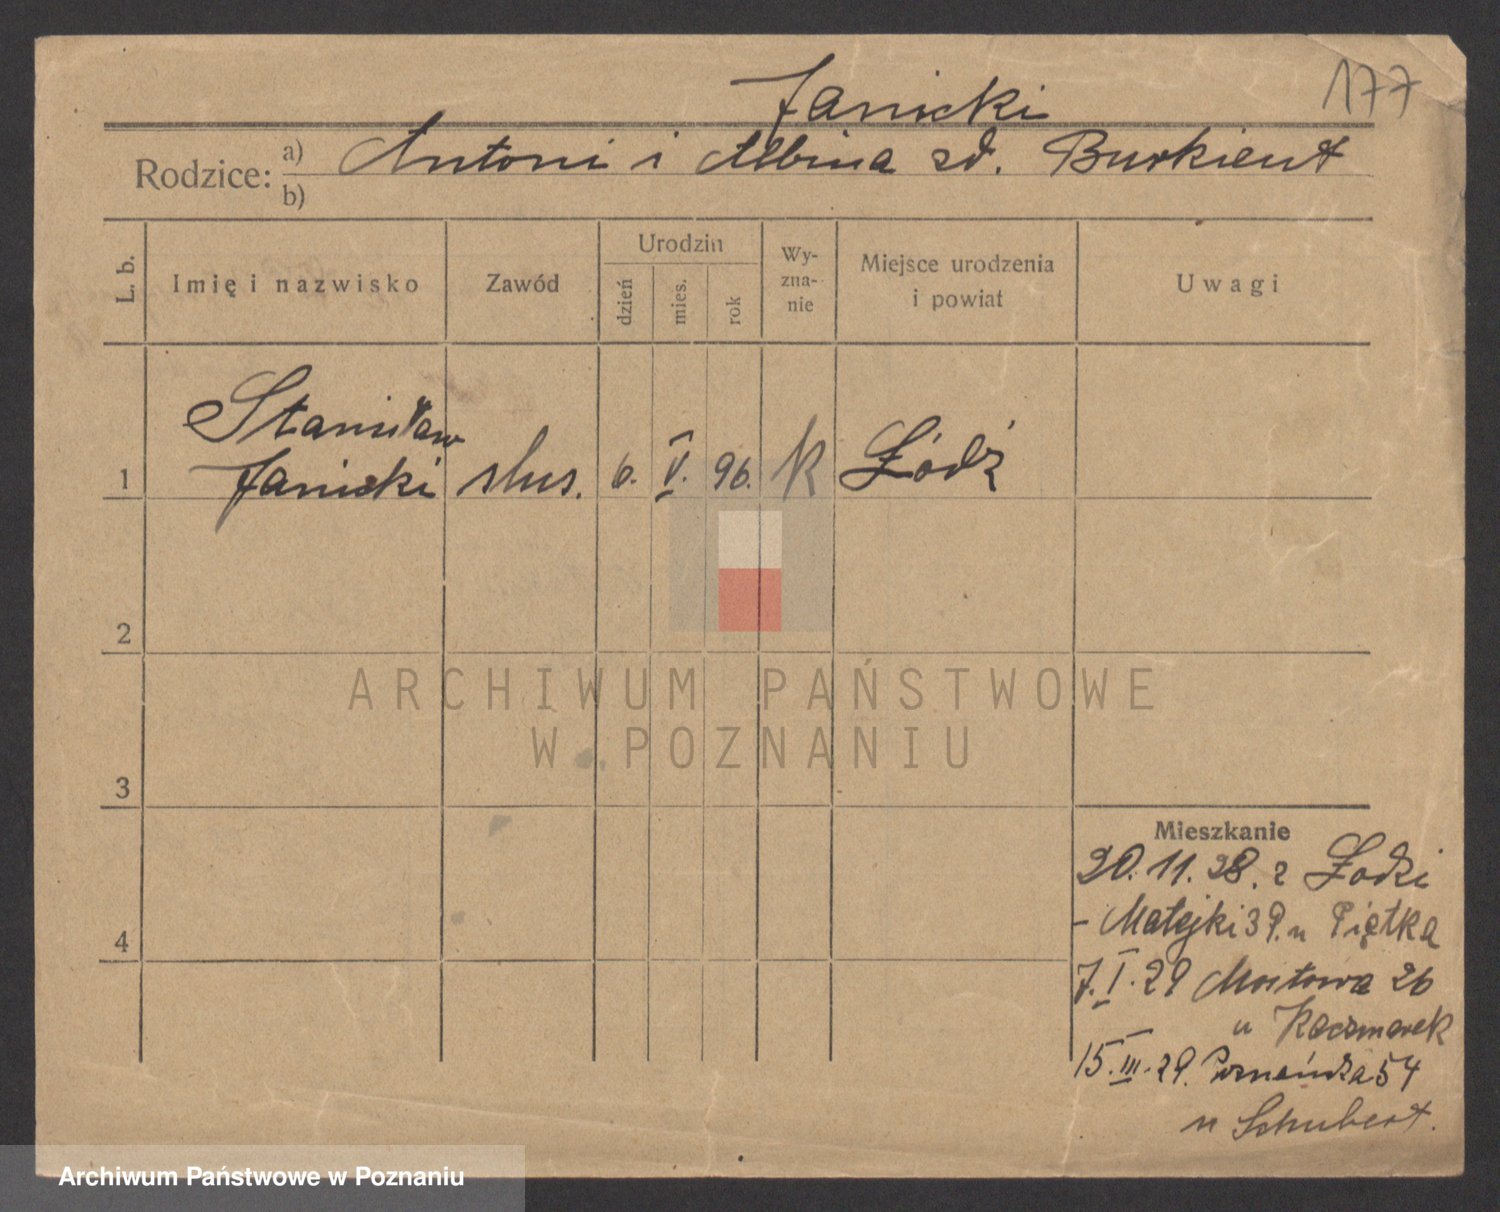 177
Janicki
Rodzice: a) Antoni i Albina zd. Burkient
b)
L. b.
Imię i nazwisko
Zawód
Urodzin
dzień
mies.
rok
Wy-
zna-
nie
Miejsce urodzenia
i powiat
Uwagi
Stanisław
1 Janicki ślus. 6. V. 96. k Łódź
2
3
4
ARCHIWUM PAŃSTWOWE
W POZNANIU
Mieszkanie
20.11.28. z Łodzi
- Matejki 39. u Piętka
7.I.29 Mostowa 26
u Kaczmarek
15.III.29. Poznańska 54
u Schubert.
Archiwum Państwowe w Poznaniu